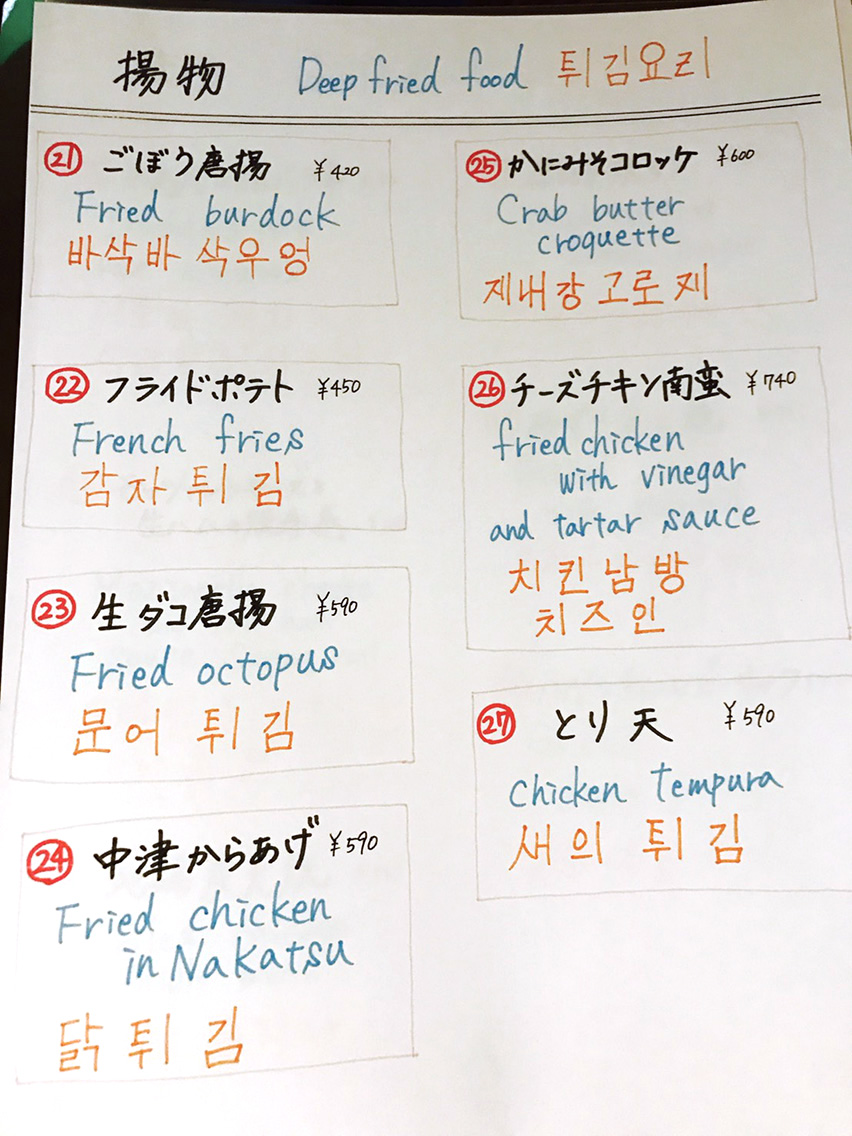 揚物 Deep fried food 튀김요리
21 ごぼう唐揚 ¥420
Fried burdock
바삭바삭우엉
22 フライドポテト ¥450
French fries
감자튀김
23 生ダコ唐揚 ¥590
Fried octopus
문어 튀김
24 中津からあげ ¥590
Fried chicken
in Nakatsu
닭튀김
25 かにみそコロッケ ¥600
Crab butter
croquette
제내장고로케
26 チーズチキン南蛮 ¥740
fried chicken
with vinegar
and tartar sauce
치킨남방
치즈인
27 とり天 ¥590
chicken tempura
새의 튀김